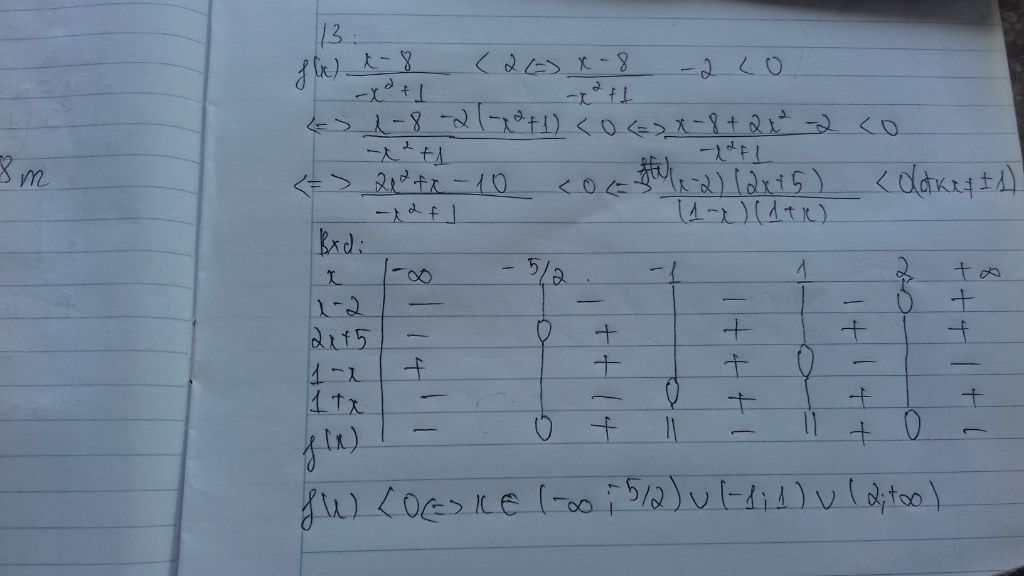 13:
f(x) x-8/-x²+1 < 2 <=> x-8/-x²+1 -2 < 0
<=> x-8-2(-x²+1)/-x²+1 < 0 <=> x-8+2x²-2/-x²+1 < 0
8 m
<=> 2x²+x-10/-x²+1 < 0 <=> (x-2)(2x+5)/(1-x)(1+x) < 0(đkx≠±1)
Bxd:
x -∞ -5/2 -1 1 2 +∞
x-2 - - - - 0 +
2x+5 - 0 + + + +
1-x + + + 0 - -
1+x - - 0 + + +
f(x) - 0 + || - || + 0 -
f(x) <0<=> x∈ (-∞;-5/2)∪(-1;1)∪(2;+∞)